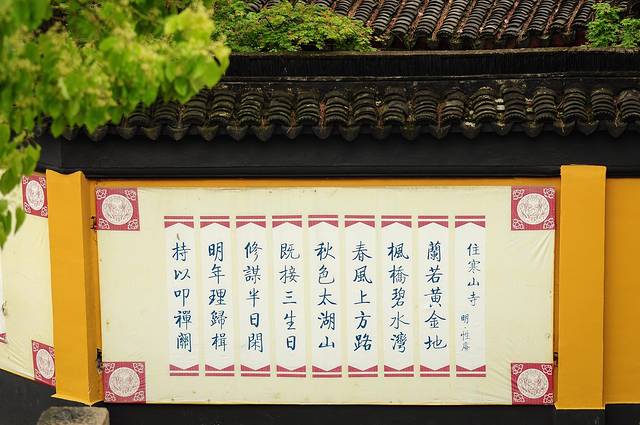 住寒山寺 明 性库
蘭若黄金地
楓橋碧水灣
春風上方路
秋色太湖山
既接三生日
修謀半日閑
明年理歸楫
持以叩禪關